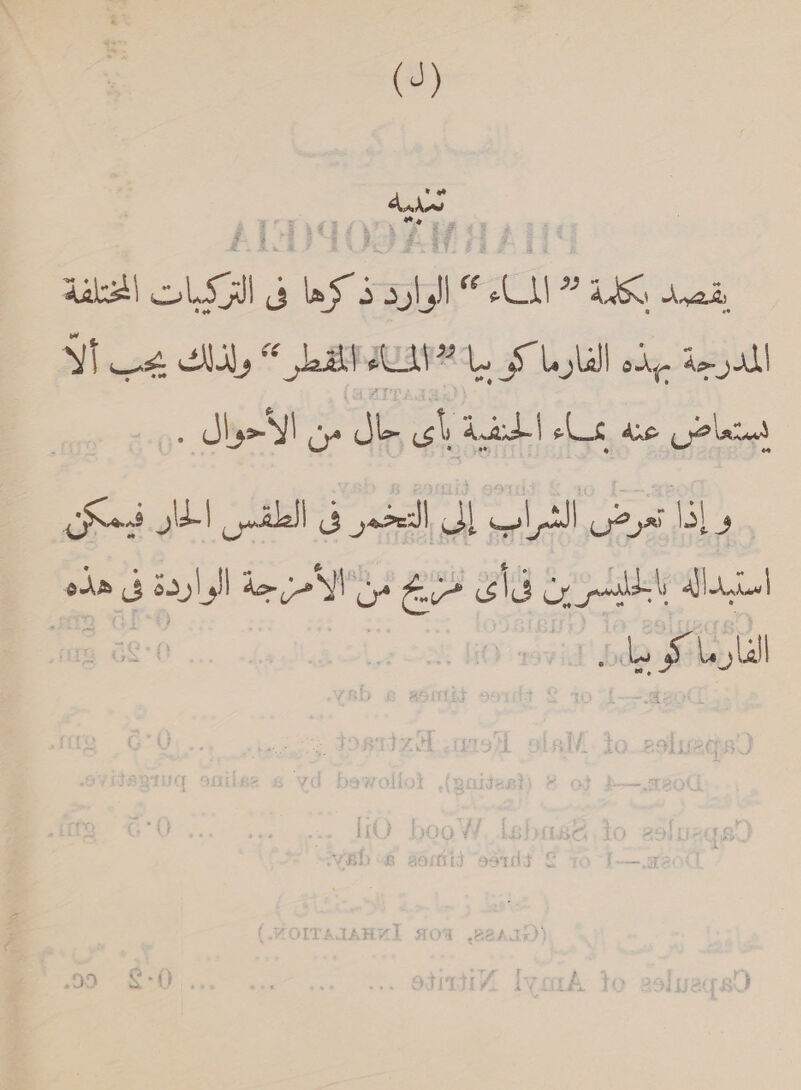 (ل)
تنبيه
يقصد بكلمة ” المـاء “ الوارد ذكرها فى التركيبات المختلفة
المدرجة بهذه الفارماكوبيا ” المـاء المقطر “ ولذلك يجب ألاّ
يستعاض عنه بمـاء الحنفية بأى حال من الأحوال .
وإذا تعرض الشراب إلى التخمر فى الطقس الحار فيمكن
استبداله بالجليسرين فى أى مزيج من الأمزجة الواردة فى هذه
الفارماكوبيا .